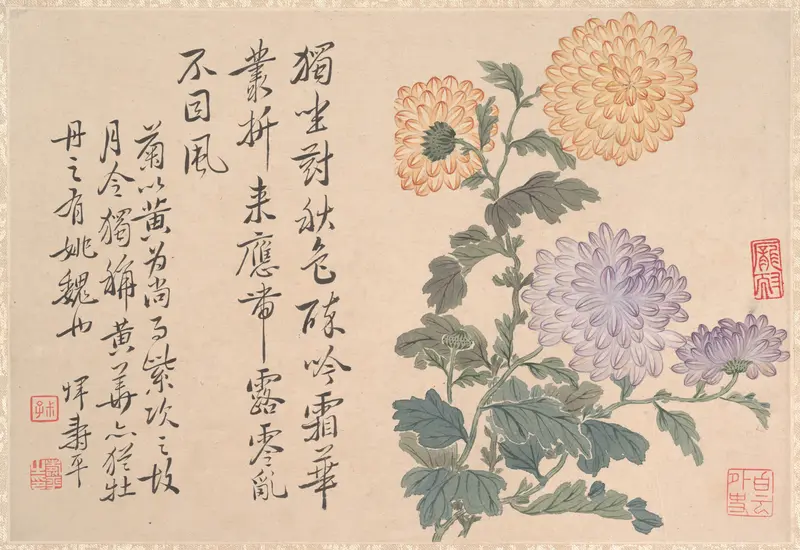 獨坐對秋色醉吟霜華
叢折来應帶露零亂
不因風
菊以黃为尚而紫次之故
月令獨稱黃華亦猶牡
丹之有姚魏也
惲壽平
白云外史